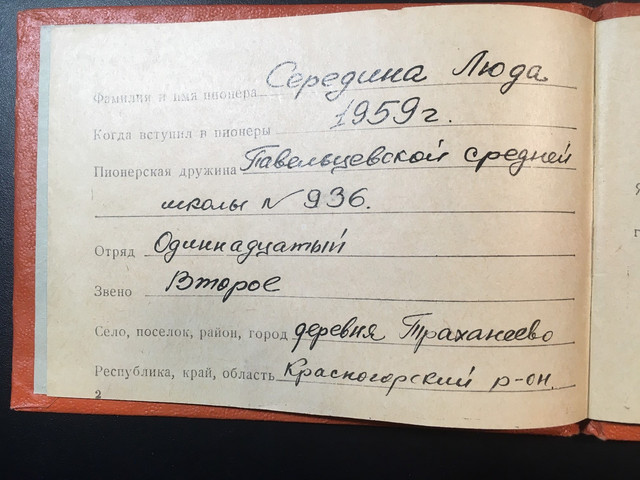 Фамилия и имя пионера Середина Люда
Когда вступил в пионеры 1959г.
Пионерская дружина Павельцевской средней
школы № 936.
Отряд Одиннадцатый
Звено Второе
Село, поселок, район, город деревня Траханеево
Республика, край, область Красногорский р-он.
2